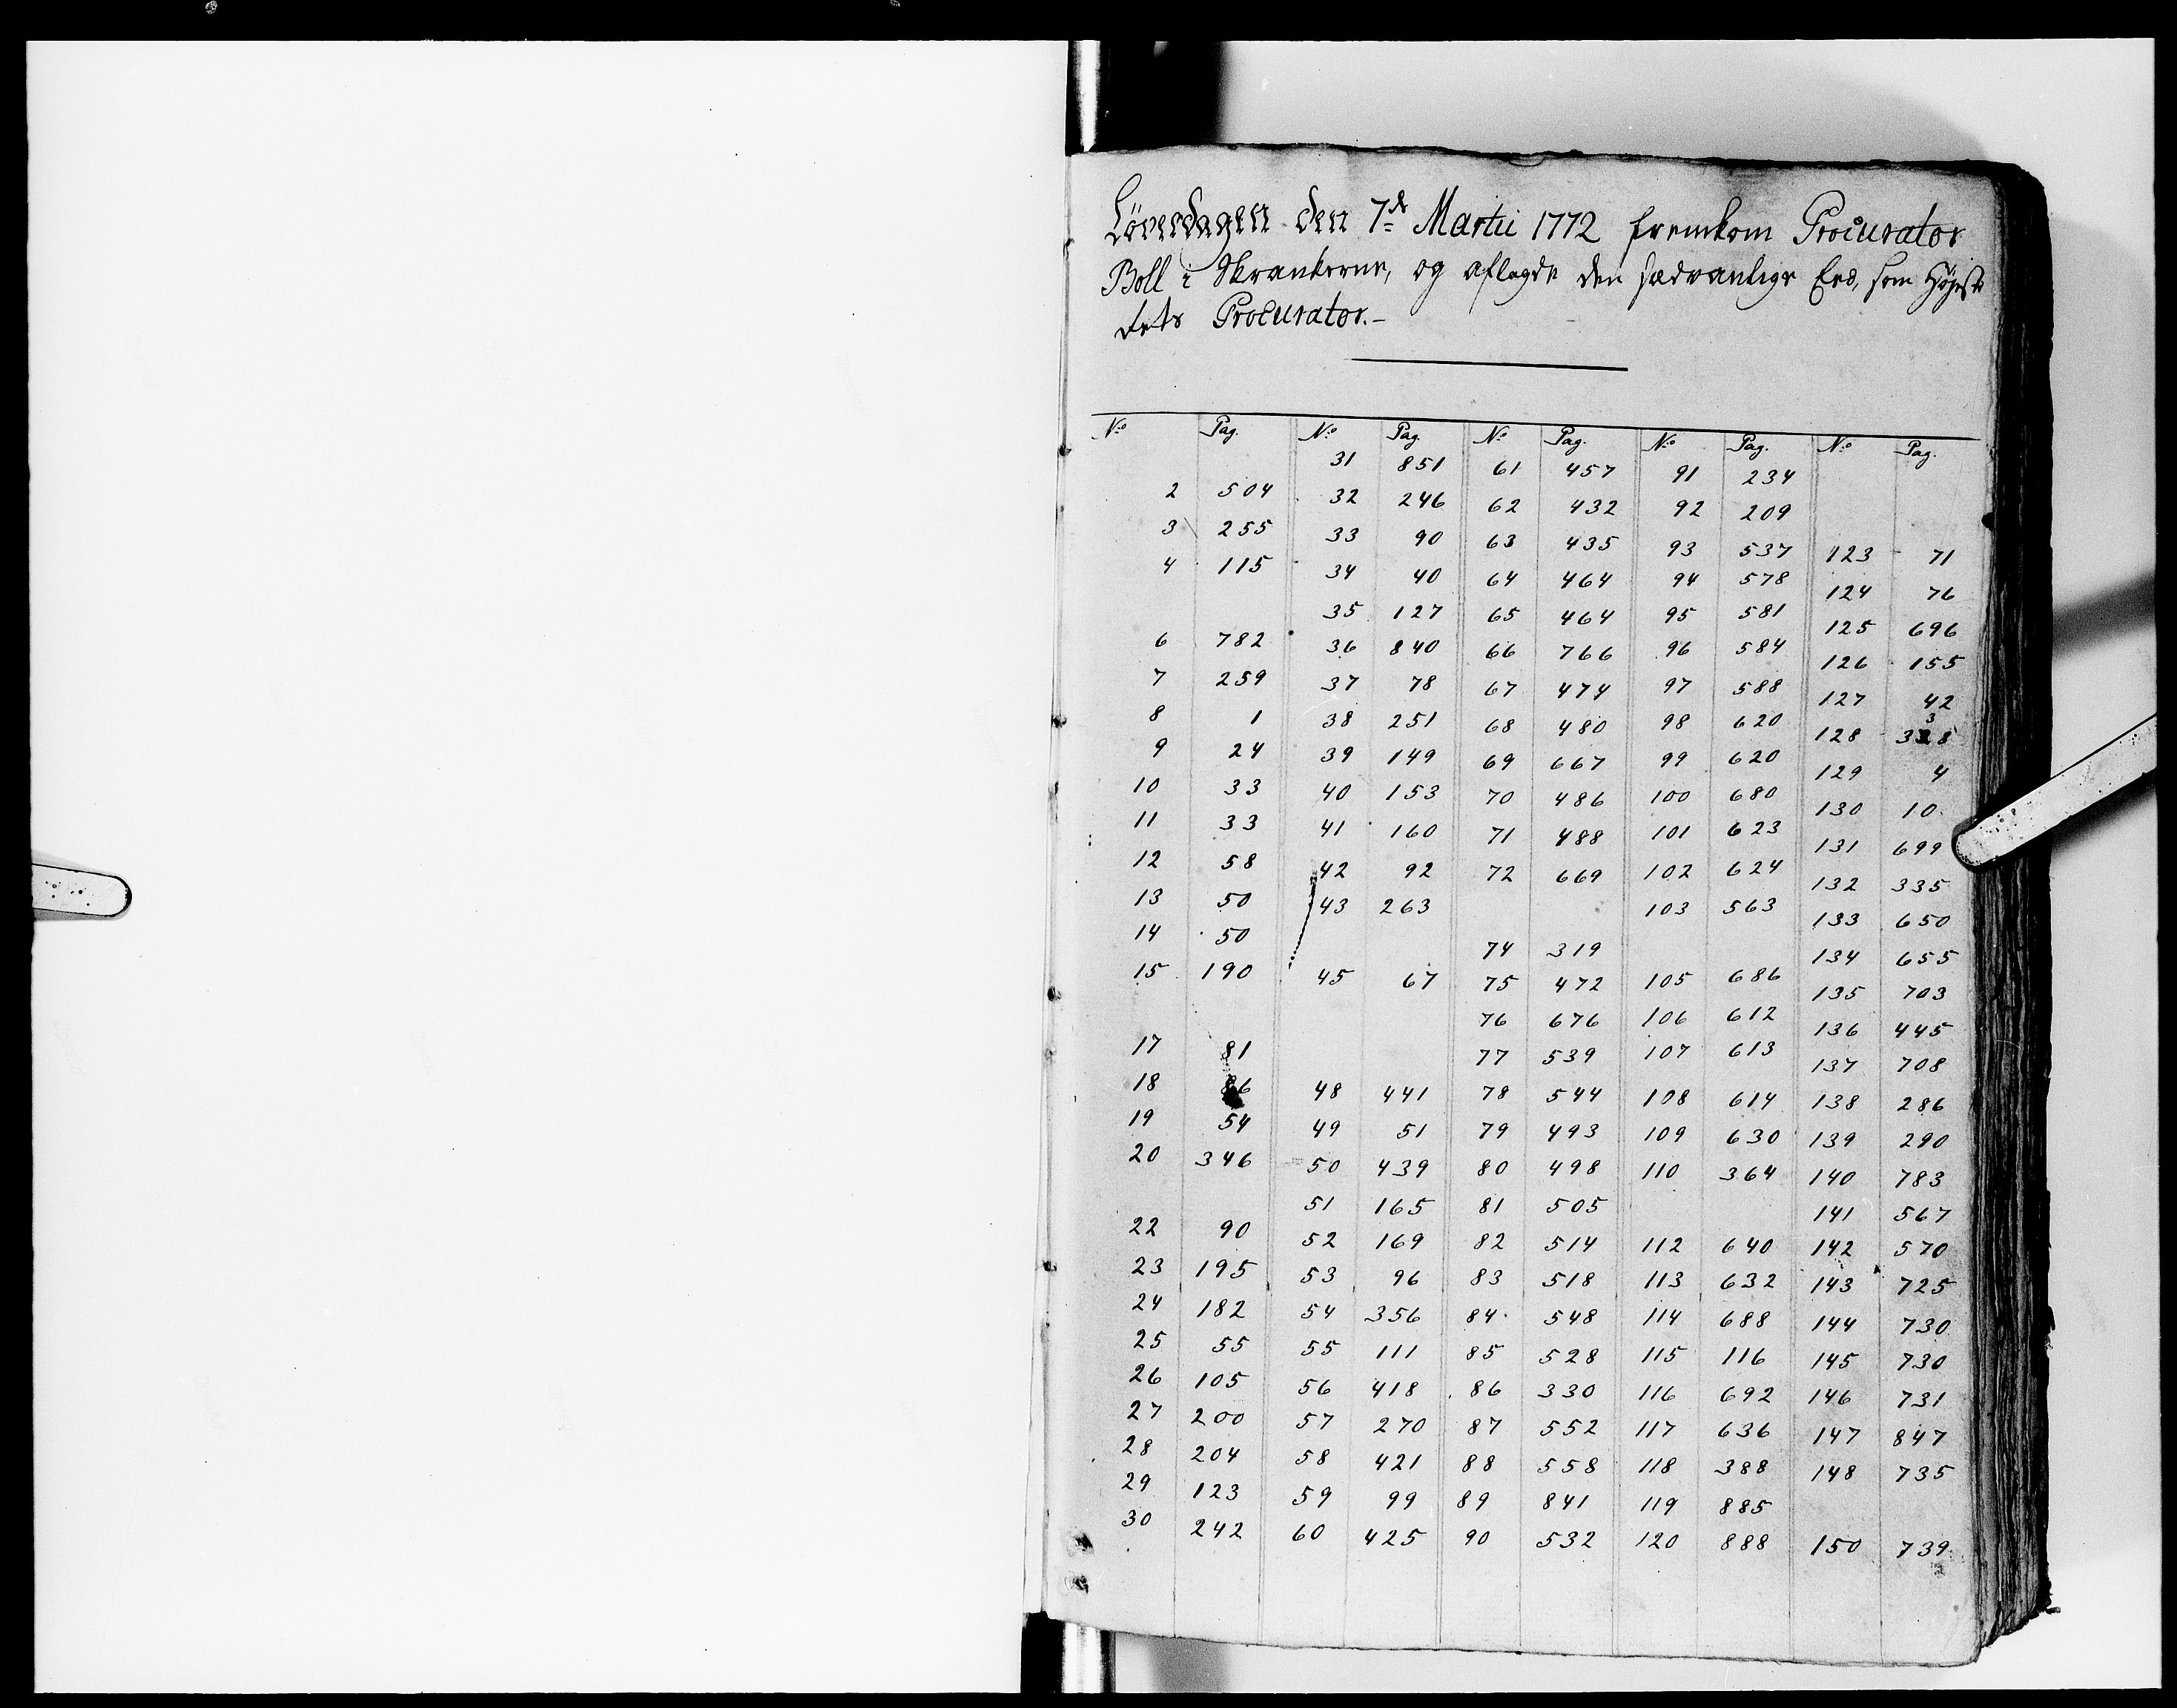 Löverdagen den 7de Martii 1772 fremkom Procurator
Boll i Skrankerne, og aflagde den sædvanlige Eed, som Højeste
dets Procurator.-
No Pag. No Pag. No Pag. No Pag. No Pag.
31 851 61 457 91 234
2 504 32 246 62 432 92 209
3 255 33 90 63 435 93 537 123 71
4 115 34 40 64 464 94 578 124 76
35 127 65 464 95 581 125 696
6 782 36 840 66 766 96 584 126 155
7 259 37 78 67 474 97 588 127 42
8 1 38 251 68 480 98 620 128 338
9 24 39 149 69 667 99 620 129 4
10 33 40 153 70 486 100 680 130 10
11 33 41 160 71 488 101 623 131 699
12 58 42 92 72 669 102 624 132 335
13 50 43 263 103 563 133 650
14 50 74 319 134 655
15 190 45 67 75 472 105 686 135 703
76 676 106 612 136 445
17 81 77 539 107 613 137 708
18 86 48 441 78 544 108 614 138 286
19 54 49 51 79 493 109 630 139 290
20 346 50 439 80 498 110 364 140 783
51 165 81 505 141 567
22 90 52 169 82 514 112 640 142 570
23 195 53 96 83 518 113 632 143 725
24 182 54 356 84 548 114 688 144 730
25 55 55 111 85 528 115 116 145 730
26 105 56 418 86 330 116 692 146 731
27 200 57 270 87 552 117 636 147 847
28 204 58 421 88 558 118 388 148 735
29 123 59 99 89 841 119 885
30 242 60 425 90 532 120 888 150 739